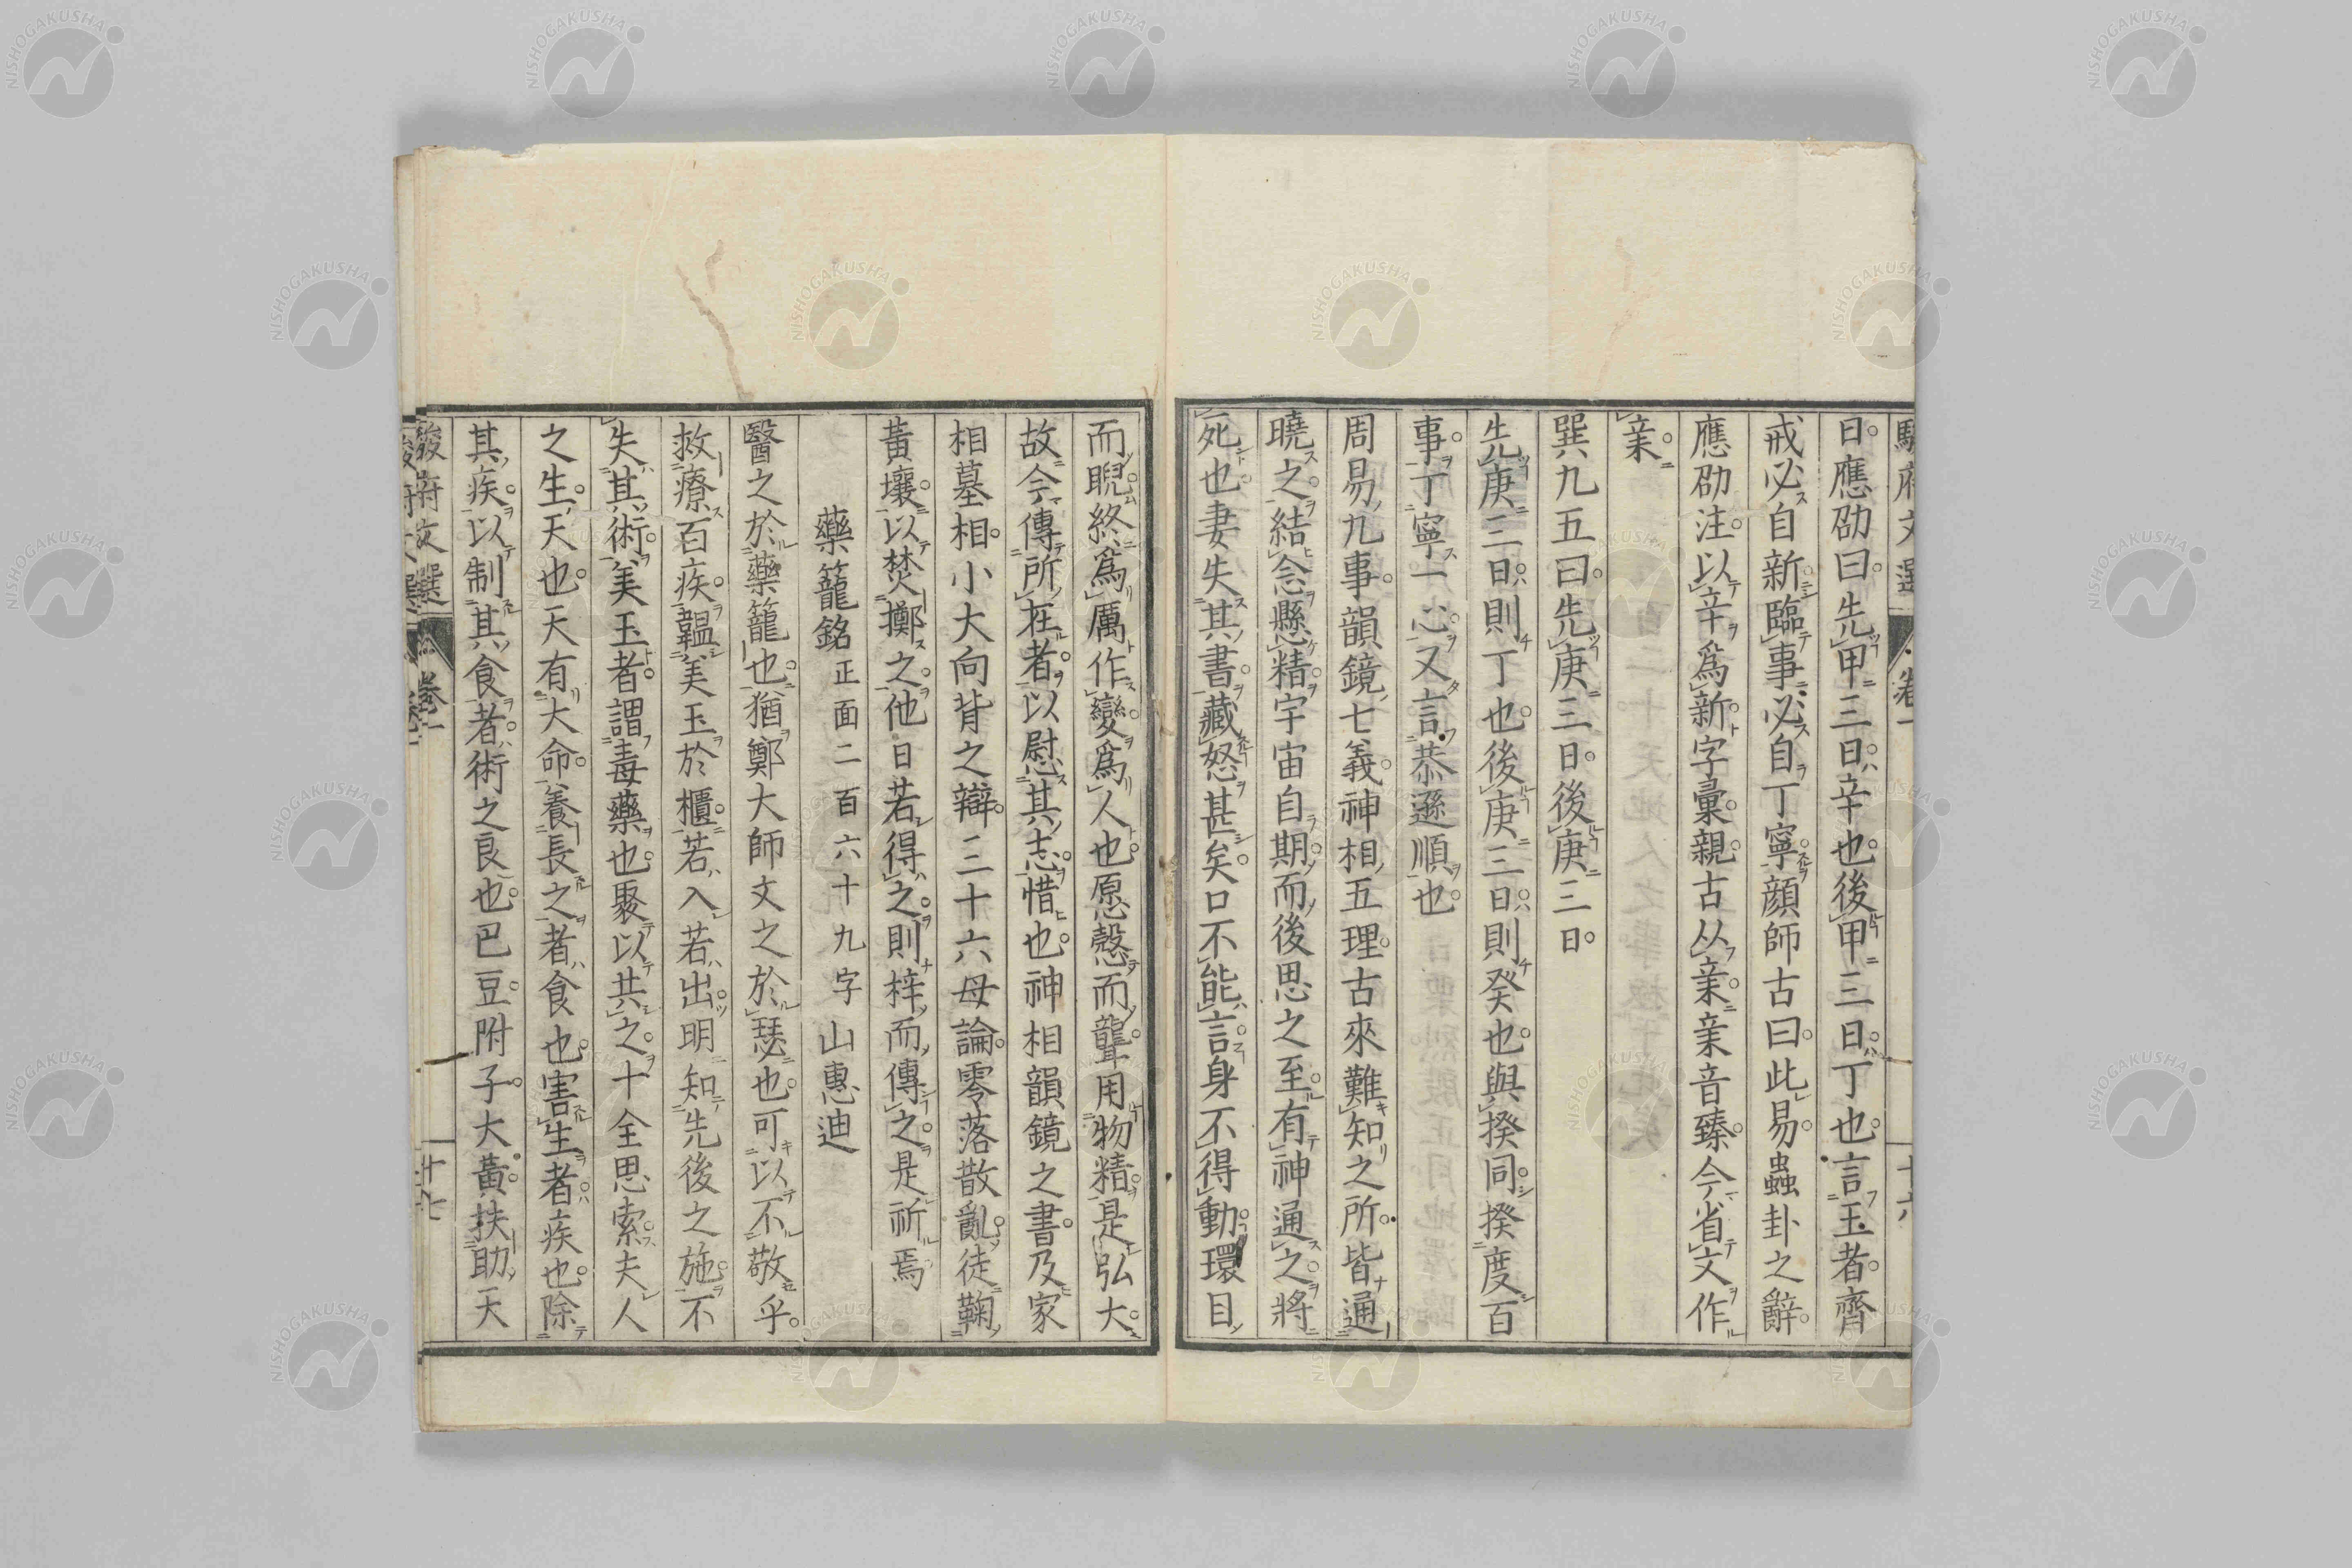 日應劭曰先甲三日辛也後甲三日丁也言王者齊
戒必自新臨事必自丁寧顔師古曰此易蠱卦之辭
應劭注以辛爲新字彙親古从亲亲音臻今省文作
亲
巽九五曰先庚三日後庚三日
先庚三日則丁也後庚三日則癸也與揆同揆度百
事丁寧一心又言恭遜順也
周易九事韻鏡七義神相五理古來難知之所皆通
曉之結念懸精宇宙自期而後思之至有神通之將
死也妻失其書藏怒甚矣口不能言身不得動環目
而睨終爲厲作變爲人也愿愨而聾用物精是弘大
故今傳所在者以慰其志惜也神相韻鏡之書及家
相墓相小大向背之辯三十六母論零落散亂徒鞠
黃壤以焚擲之他日若得之則梓而傳之是祈焉
藥籠銘 正面二百六十九字 山惠迪
醫之於藥籠也猶鄭大師文之於瑟也可以不敬乎
救療百疾韞美玉於櫃若入若出明知先後之施不
失其術美玉者謂毒藥也聚以共之十全思索夫人
之生天也天有大命養長之者食也害生者疾也除
其疾以制其食者術之良也巴豆附子大黃扶助天
駿府文選 卷一 十七